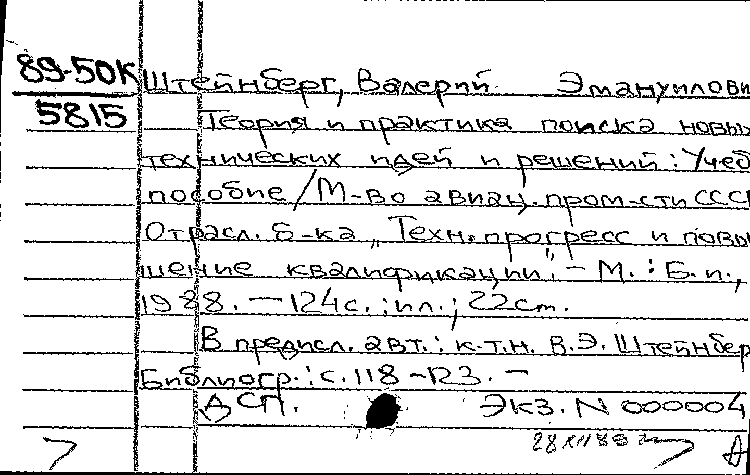 89-50К
5815
Штейнберг, Валерий Эмануилови
Теория и практика поиска новы
технических идей и решений: Учеб
пособие / М-во авиац. пром-сти СССР
Отрасл. б-ка „Техн. прогресс и повы
шение квалификации". - М. : Б.и.,
1988. — 124с. : ил. ; 22см.
В предисл. авт.: к.т.н. В.Э. Штейнбер
Библиогр.: с. 118-123. -
ДСП. Экз. N 000004